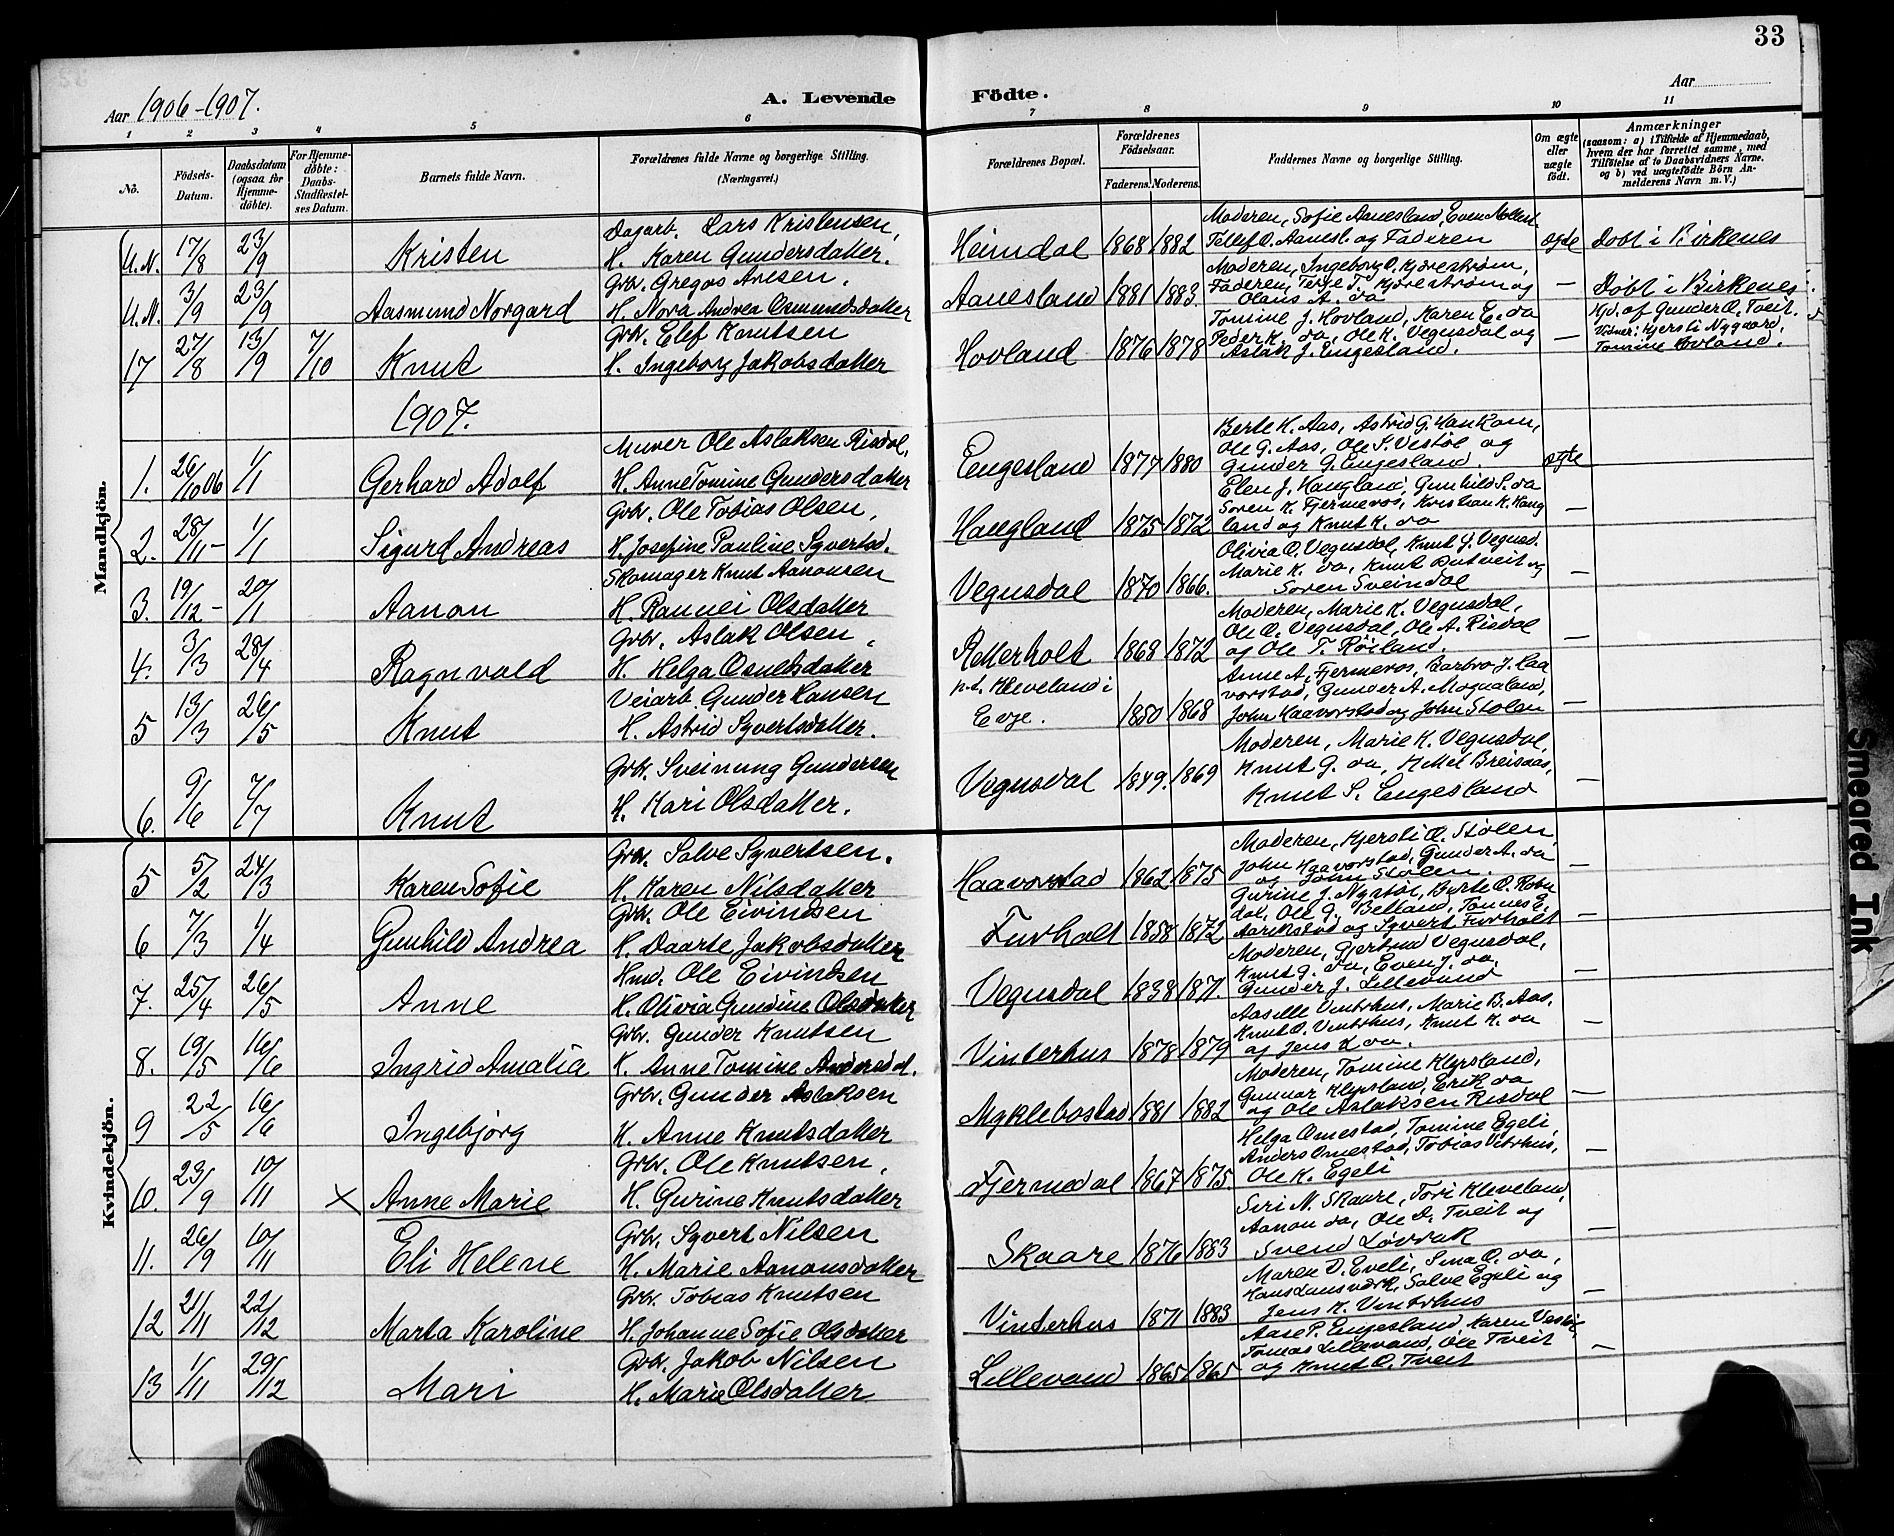 33
Aar 1906-1907. A. Levende Födte. Aar
1 2 3 4 5 6 7 8 9 10 11
Nö.
Födsels-Datum.
Daabsdatum (ogsaa för Hjemme-döbte).
For Hjemme-döbte: Daabs-Stadfestel-ses Datum.
Barnets fulde Navn.
Forældrenes fulde Navne og borgerlige Stilling. (Næringsvei.)
Forældrenes Bopæl.
Forældrenes Födselsaar.
Faderens. Moderens.
Faddernes Navne og borgerlige Stilling.
Om ægte eller uægte födt.
Anmærkninger
(saasom: a) i Tilfælde af Hjemmedaab,
hvem der har forrettet samme, med
Tilföielse af to Daabsvidners Navne.
og b) ved uægtefödte Börn An-
melderens Navn m. V.)
Mandkjön.
U.N. 17/8 23/9 Kristen
Dagarb. Lars Kristensen,
H. Karen Gundersdatter.
Heimdal 1868 1882
Moderen, Sofie Aanesland, Even
Tellef O. Aanesl. og Faderen
ægte Döbt i Birkenes
U.N. 3/9 23/9 Aasmund Norgard
Grbr. Gregos Arnsen.
H. Nora Andrea Osmundsdatter
Aanesland 1881 1883.
Moderen, Ingeborg O. Kjörestrøm,
Faderen, Terje J. Kjörestrøm og
Olaus A. do
— Döbt i Birkenes
17 27/8 13/9 7/10 Knut
Grbr. Elef Knutsen
H. Ingeborg Jakobsdatter
Hovland 1876 1878
Tomine J. Hovland, Karen E. do
Peder K. do, Ole K. Vegusdal og
Aslak J. Engesland.
— Hjd. af Gunder O. Tveit.
Vidner: Kjersti Nygaard,
Tomine Hovland.
1907.
1. 26/10 06 1/1 Gerhard Adolf
Murer Ole Aslaksen Risdal,
H. Anne Tomine Gundersdatter
Engesland 1877 1880
Berte K. Aas, Astrid G. Hankam,
Ole G. Aas, Ole S. Vestöl og
Gunder G. Engesland.
ægte
2. 28/11 - 1/1 Sigurd Andreas
Grbr. Ole Tobias Olsen,
H. Josefine Pauline Syvertsd.
Haugland 1875 1872
Elen J. Haugland, Gunhild S. do
Søren K. Fjermeros, Kristian K. Haug
land og Knut K. do
—
3. 19/12 - 20/1 Aanon
Skomager Knut Aanonsen
H. Rannei Olsdatter
Vegusdal 1870 1866.
Olivia O. Vegusdal, Knut J. Vegusd.
Marie K. do, Knut Butveit og
Søren Sveindal
—
4. 3/3 28/4 Ragnvald
Grbr. Aslak Olsen,
H. Helga Osuldsdatter
Retterholt 1868 1872
Moderen, Marie K. Vegusdal,
Ole O. Vegusdal, Ole A. Risdal
og Ole T. Röiland.
—
5 13/3 26/5 Knut
Veiarb. Gunder Hansen
H. Astrid Syvertsdatter.
p.t. Kleveland i
Evje. 1850 1868
Anne A. Fjermeros, Barbro J. Haa
vorstad, Gunder A. Mognaland,
John Haavorstad og John Stolen
—
6. 9/6 7/7 Knut
Grbr. Sveinung Gundersen
H. Kari Olsdatter.
Vegusdal 1849. 1869
Moderen, Marie K. Vegusdal,
Knut G. do, Kittel Breisaas,
Knut S. Engesland
—
Kvindekjön.
5 5/2 24/3 Karen Sofie
Grbr. Salve Syvertsen.
H. Karen Nilsdatter
Haavorstad 1862 1875
Moderen, Kjersti O. Stölen,
John Haavorstad, Gunder A. do
og John Stölen.
—
6 7/3 1/4 Gunhild Andrea
Grbr. Ole Eivindsen
H. Daarte Jakobsdatter
Furholt 1858 1872
Gurine J. Nystöl, Berte O. Robu
dal, Ole G. Belland, Tønnes E.
Aarikstad og Syvert Furholt
—
7. 25/4 26/5 Anne
Hmd. Ole Eivindsen
H. Olivia Gundine Olsdatter
Vegusdal 1838 1871.
Moderen, Gjertrud Vegusdal,
Knut G. do, Even J. do,
Gunder J. Lillevand
—
8. 19/5 16/6 Ingrid Amalia
Grbr. Gunder Knutsen
H. Anne Tomine Andersdat.
Vinterhus 1878 1879
Aaselle Vintrhus, Marie B. Aas,
Knut O. Vintrhus, Knut K. do
og Jens K do.
—
9 22/5 16/6 Ingebjørg
Grbr. Gunder Aslaksen
H. Anne Knutsdatter
Myklebostad 1881 1882
Moderen, Tomine Klepsland,
Gunnar Klepsland, Erik do
og Ole Aslaksen Risdal
—
10. 23/9 10/11 × Anne Marie
Grbr. Ole Knutsen,
H. Gurine Knutsdatter
Fjermedal 1867 1875.
Helga Omestad, Tomine Egeli,
Anders Omestad, Tobias Vitrhus,
Ole K. Egeli
—
11. 26/9 10/11 Eli Helene
Grbr. Syvert Nilsen
H. Marie Aanonsdatter
Skaare 1876 1883
Siri N. Skaare, Tori Kleveland,
Aanon do, Ole D. Tveit og
Svend Lövrak
—
12 21/11 22/12 Marta Karoline
Grbr. Tobias Knutsen
H. Johanne Sofie Olsdatter
Vinterhus 1871 1883
Maren O. Eveli, Sina O. do,
Hans Lansverk, Salve Egeli og
Jens K. Vintrhus
—
13 1/11 29/12 Mari
Grbr. Jakob Nilsen
H. Marie Olsdatter
Lillevand 1865 1865
Aase P. Engesland, Karen Vestöl
Tomas Lillevand, Ole Tveit
og Knut O. Tveit
—
Smeared Ink